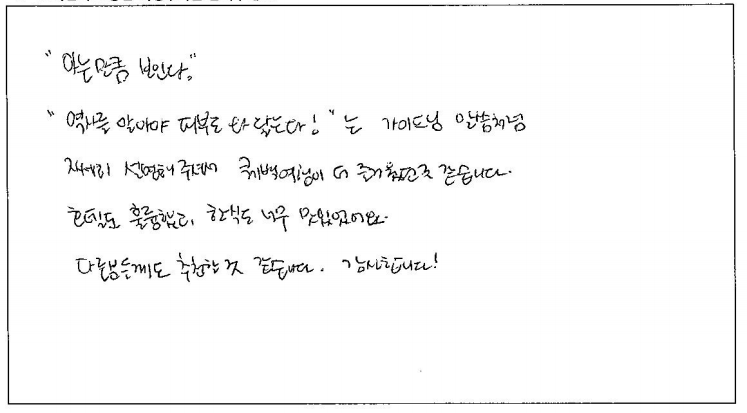 "아는만큼 보인다."
"역사를 알아야 피부로 와 닿는다!"는 가이드님 말씀처럼
자세히 설명해주셔서 퀘백여행이 더 즐거웠던것 같습니다.
호텔도 훌륭했고, 한식도 너무 맛있었어요.
다른분들께도 추천할 것 같습니다. 감사합니다!